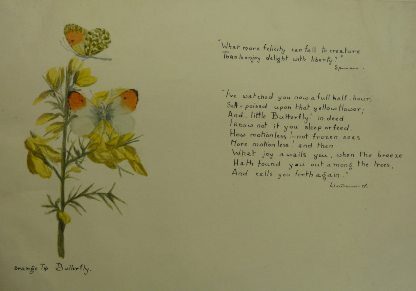 "What more felicity can fall to creature
Than enjoying delight with liberty."
Spenser.
"I've watched you now a full half-hour,
Self-poised upon that yellow flower,
And, little Butterfly! indeed
I know not if you sleep or feed
How motionless! not frozen seas
More motionless! and then
What joy awaits you, when the breeze
Hath found you out among the trees,
And calls you forth again."
Wordsworth.
Orange Tip Butterfly.